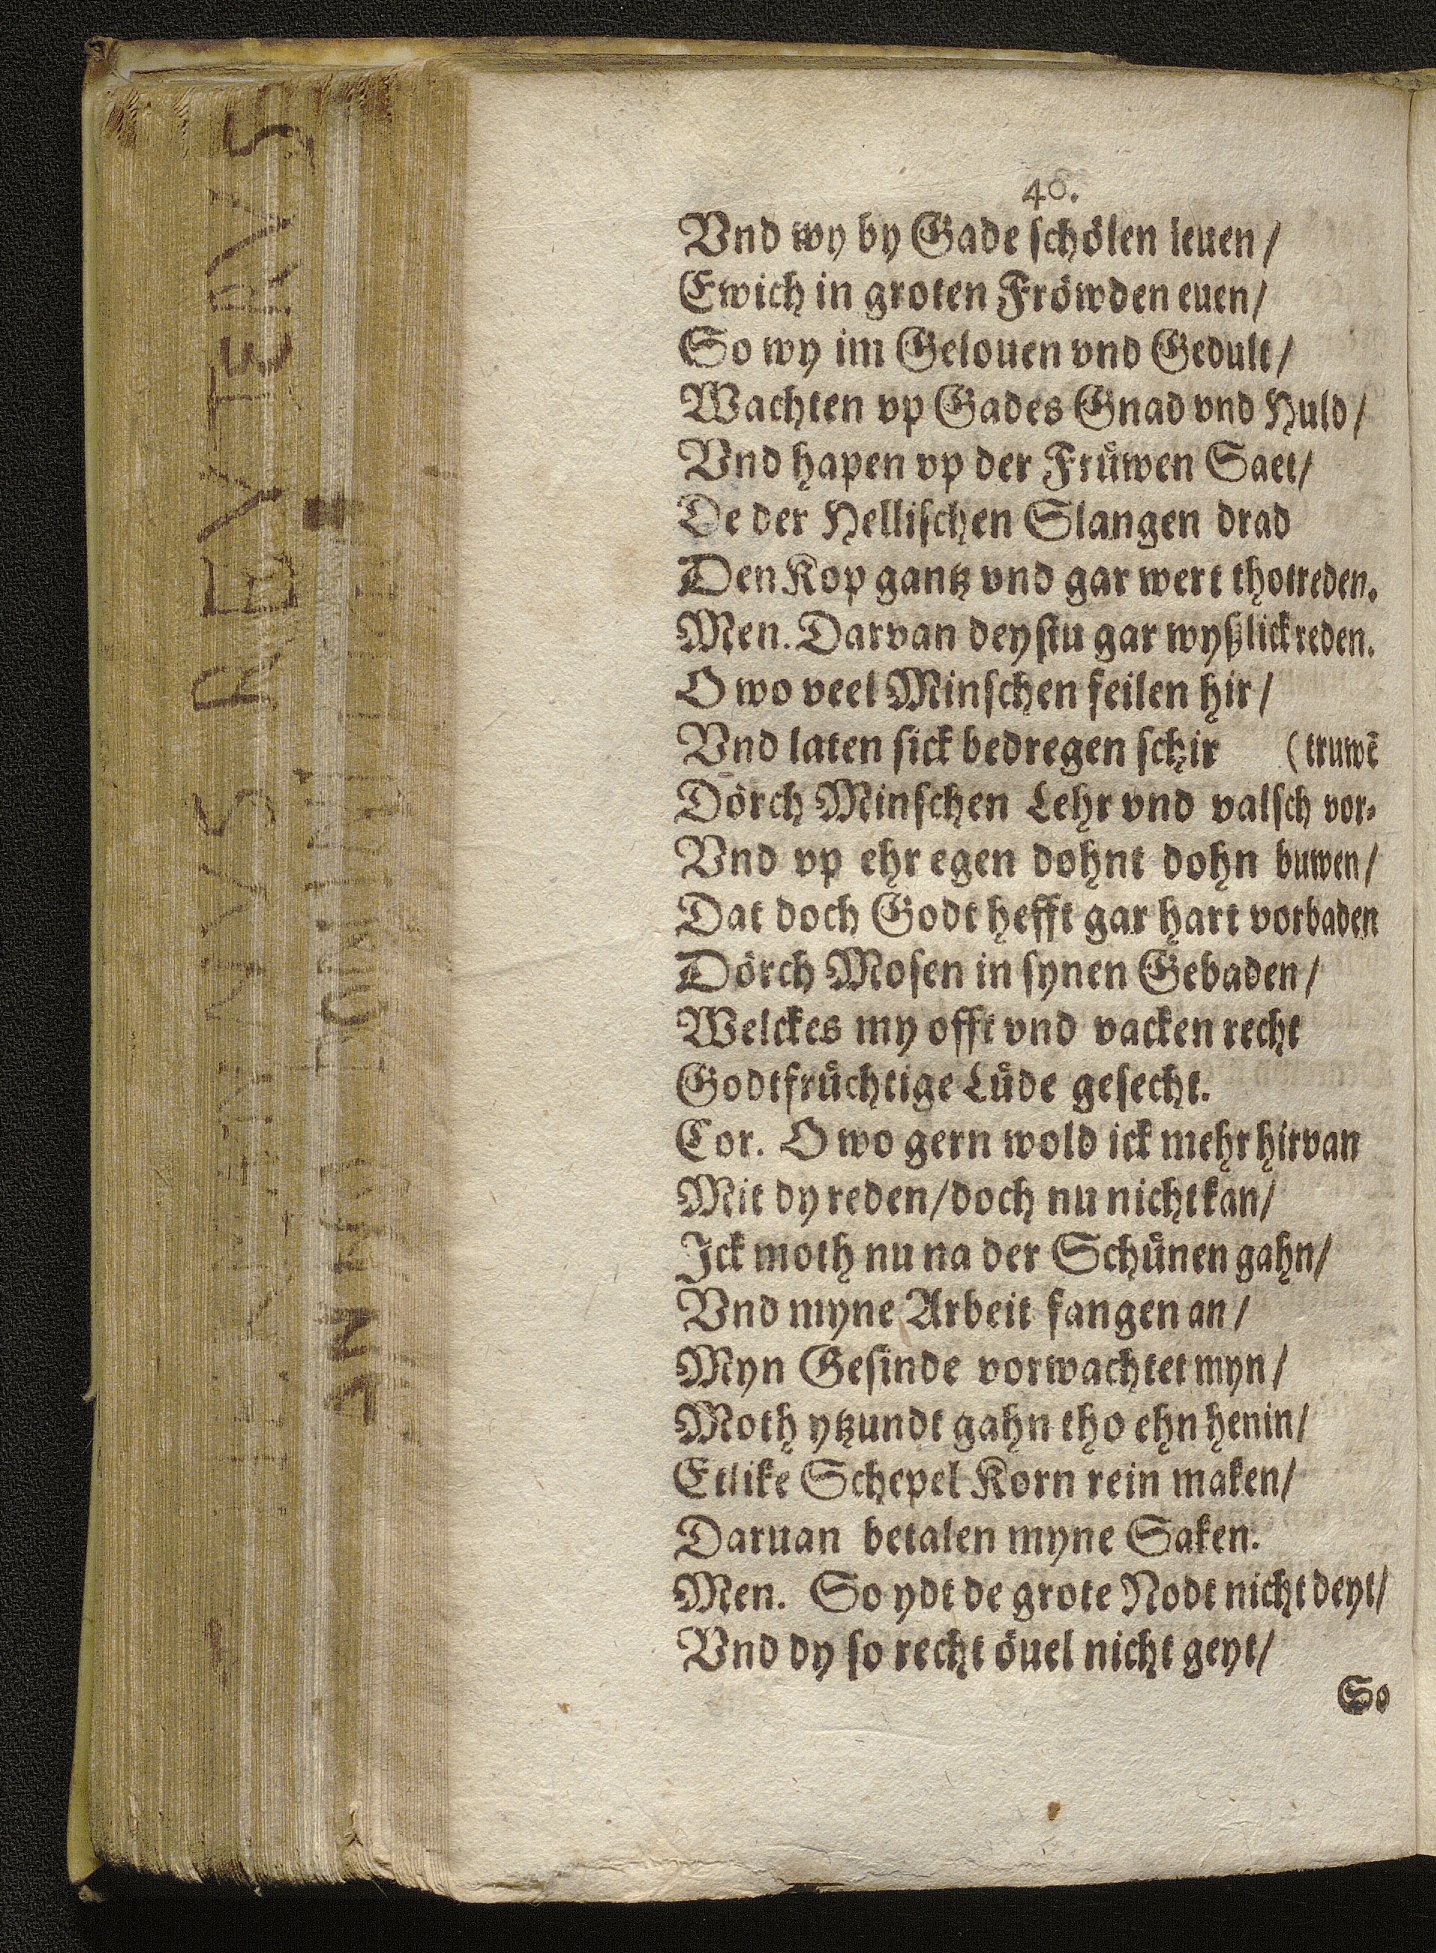 40.
Vnd wy by Gade schölen leuen /
Ewich in groten Fröwden euen /
So wy im Gelouen vnd Gedult /
Wachten vp Gades Gnad vnd Huld /
Vnd hapen vp der Früwen Saet /
De der Hellischen Slangen drad
Den Kop gantz vnd gar wert thotreden.
Men. Darvan deystu gar wyßlick reden.
O wo veel Minschen feilen hir /
Vnd laten sick bedregen schir (truwē
Dörch Minschen Lehr vnd valsch vor-
Vnd vp ehr egen dohnt dohn buwen /
Dat doch Godt hefft gar hart vorbaden
Dörch Mosen in synen Gebaden /
Welckes my offt vnd vacken recht
Godtfrüchtige Lüde gesecht.
Cor. O wo gern wold ick mehr hirvan
Mit dy reden / doch nu nicht kan /
Ick moth nu na der Schünen gahn /
Vnd myne Arbeit fangen an /
Myn Gesinde vorwachtet myn /
Moth ytzundt gahn tho ehn henin /
Etlike Schepel Korn rein maken /
Daruan betalen myne Saken.
Men. So ydt de grote Nodt nicht deyt /
Vnd dy so recht öuel nicht geyt /
So
REVTERVS